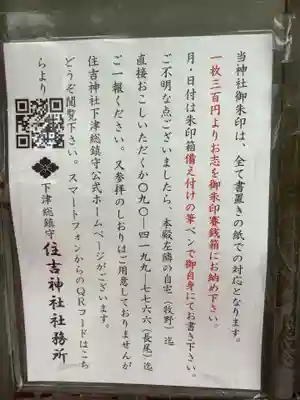 当神社御朱印は、全て書置きの紙での対応となります。
一枚三百円よりお志を御朱印賽銭箱にお納め下さい。
月・日付は朱印箱備え付けの筆ペンで御自身にてお書き下さい。
ご不明な点ございましたら、本殿左隣の自宅（牧野）迄
直接おこしいただくか〇九〇ー四一九九ー七七六六（長尾）迄
ご一報ください。又参拝のしおりはご用意しておりませんが
住吉神社下津総鎮守公式ホームページがございます。
どうぞ閲覧下さい。スマートフォンからのQRコードはこち
らより
下津総鎮守 住吉神社社務所